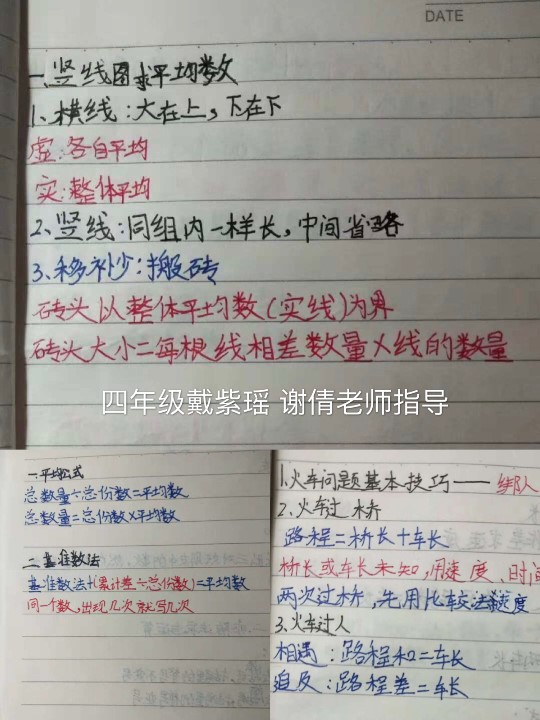 DATE
一.竖线图求平均数
1、横线:大在上,下在下
虚:各自平均
实:整体平均
2、竖线:同组内一样长,中间省略
3、移补少:搬砖
砖头以整体平均数(实线)为界
砖头大小=每根线相差数量×线的数量
四年级戴紫瑶 谢倩老师指导
一.平均公式
总数量÷总份数=平均数
总数量=总份数×平均数
二.基准数法
基准数法+(累计差÷总份数)=平均数
同一个数,出现几次就写几次
1.火车问题基本技巧——排队
2.火车过桥
路程=桥长+车长
桥长或车长未知,用速度、时间
两次过桥,先用比较法 速度
3.火车过人
相遇:路程和=车长
追及:路程差=车长